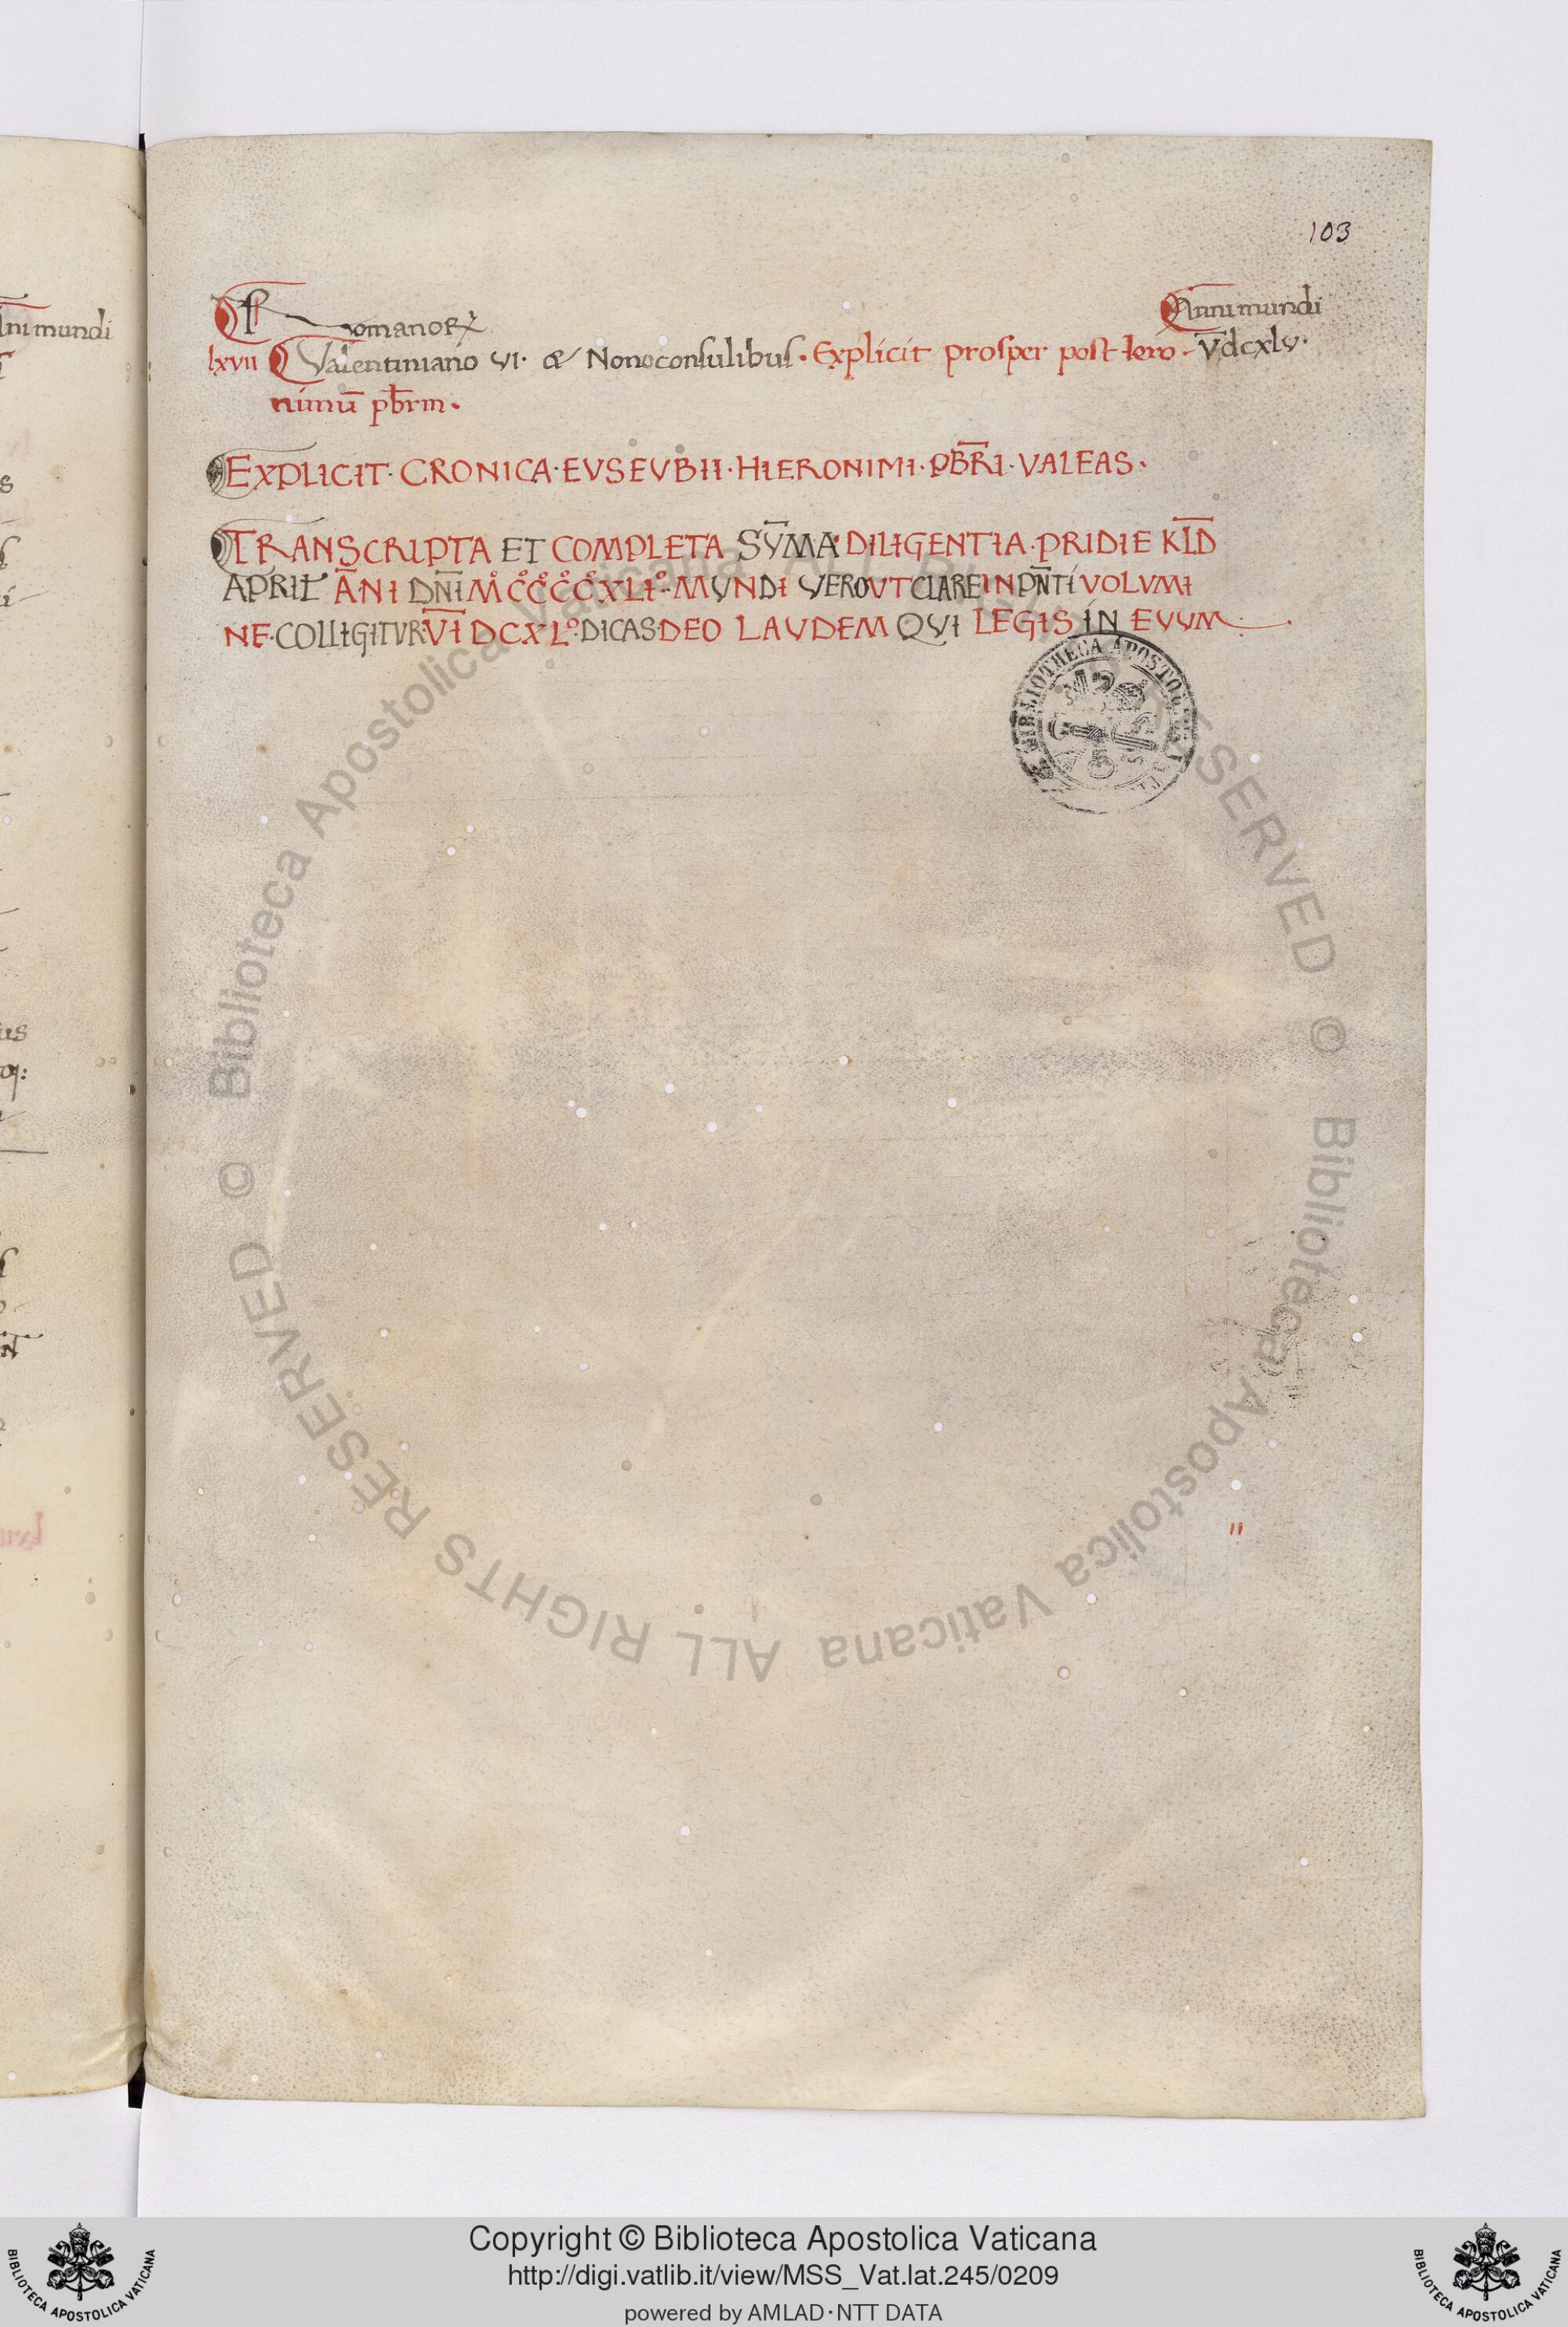 103
Romanoꝝ Anni mundi
lxvii Valentiniano vi. & Nono consulibus. Explicit prosper post Iero- V̄dcxlv.
nimū pb̄rm.
EXPLICIT. CRONICA. EVSEVBII. HIERONIMI. PB̄RI. VALEAS.
TRANSCRIPTA ET COMPLETA SȲMA DILIGENTIA. PRIDIE KL̄D
APRIL ĀNI DN̄I M̊ C̊C̊C̊C̊XLI°. MVNDI VERO VT CLARE IN PN̄TI VOLVMI
NE. COLLIGITVR. V̄I DCXL°. DICAS DEO LAVDEM QVI LEGIS IN EVVM.
BIBLIOTHECA APOSTO
ni mundi
© Biblioteca Apostolica Vaticana ALL RIGHTS RESERVED © Biblioteca Apostolica Vaticana ALL RIGHTS RESERVED
Copyright © Biblioteca Apostolica Vaticana
http://digi.vatlib.it/view/MSS_Vat.lat.245/0209
powered by AMLAD·NTT DATA
BIBLIOTECA APOSTOLICA VATICANA
BIBLIOTECA APOSTOLICA VATICANA